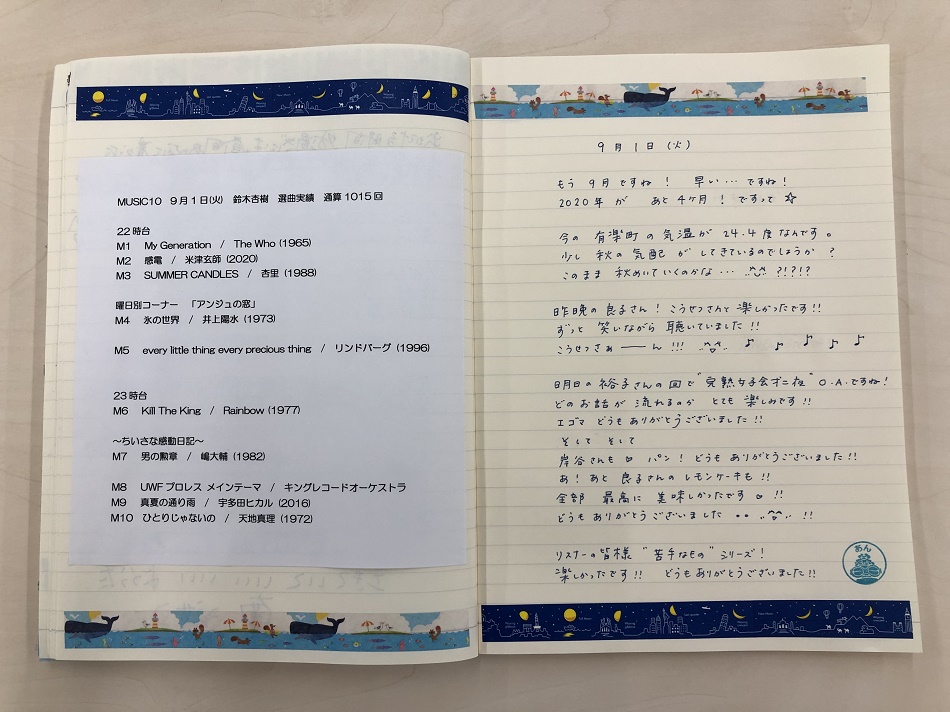 MUSIC10 9月1日(火) 鈴木杏樹 選曲実績 通算1015回
22時台
M1 My Generation / The Who (1965)
M2 感電 / 米津玄師 (2020)
M3 SUMMER CANDLES / 杏里 (1988)
曜日別コーナー 「アンジュの窓」
M4 氷の世界 / 井上陽水 (1973)
M5 every little thing every precious thing / リンドバーグ (1996)
23時台
M6 Kill The King / Rainbow (1977)
～ちいさな感動日記～
M7 男の勲章 / 嶋大輔 (1982)
M8 UWFプロレス メインテーマ / キングレコードオーケストラ
M9 真夏の通り雨 / 宇多田ヒカル (2016)
M10 ひとりじゃないの / 天地真理 (1972)
9月1日(火)
もう 9月ですね! 早い…ですね!
2020年が あと4ケ月! ですって☆
今の 有楽町の気温が 24.4度なんです。
少し 秋の気配が してきているのでしょうか?
このまま 秋めいていくのかな… ^^ ?!?!?
昨晩の良子さん! こうせつさんと楽しかったです!!
ずっと 笑いながら 聴いていました!!
こうせつさぁーーん!!! ♪ ♪ ♪ ♪ ♪
明日の裕子さんの回で"完熟女子会オニ夜" O.A.ですね!
どのお話が 流れるのか とても 楽しみです!!
エゴマ どうもありがとうございました!!
そして そして
岸谷さんも♡ パン! どうも ありがとうございました!!
あ! あと 良子さんの レモンケーキも!!
全部 最高に 美味しかったです♡!!
どうも ありがとうございました •• ^^ !!
リスナーの皆様 "苦手なもの"シリーズ!
楽しかったです!! どうもありがとうございました!!
あん